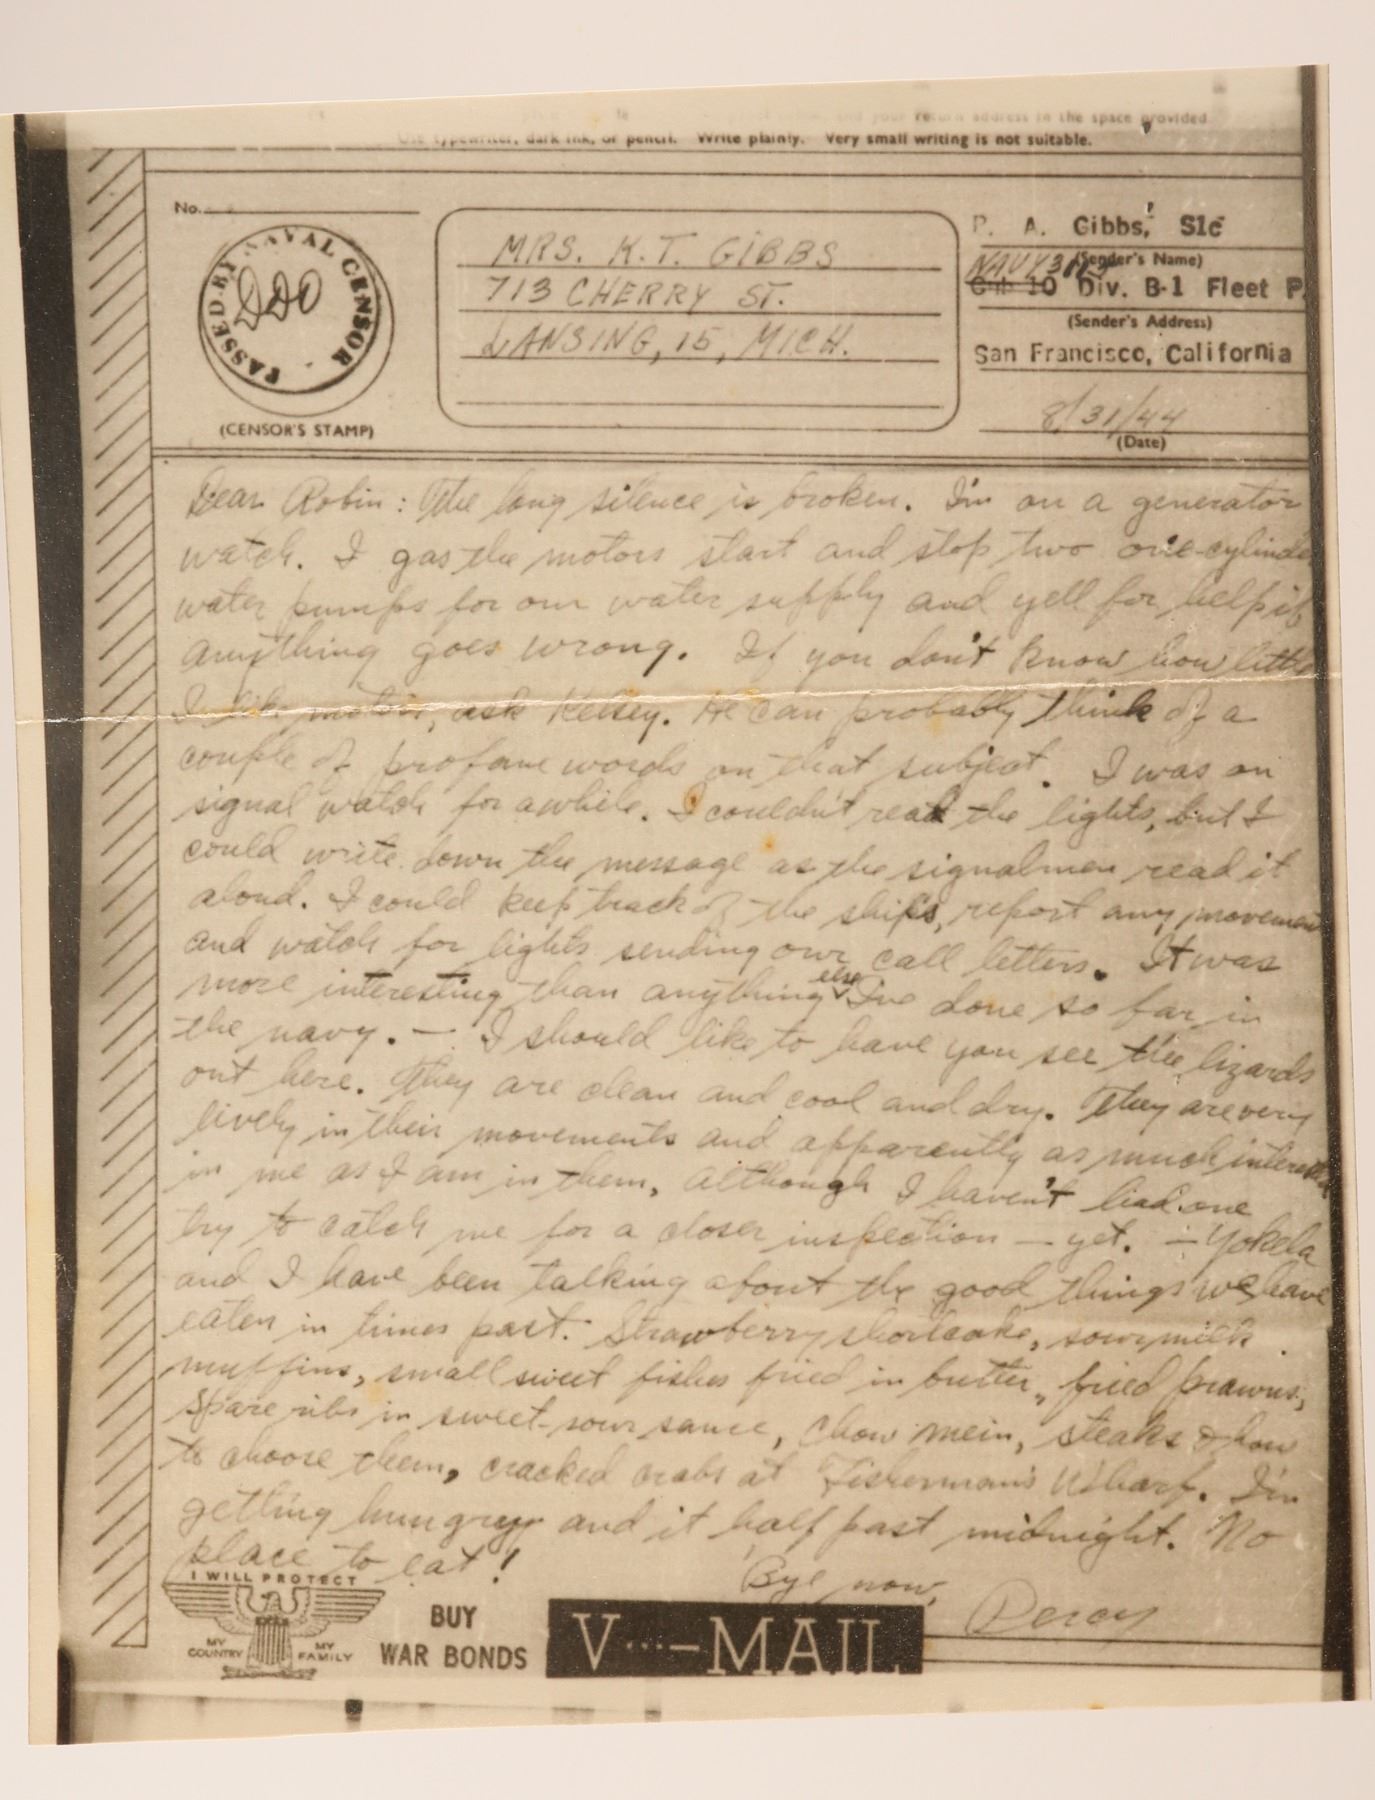 and your return address in the space provided
Use typewriter, dark ink, or pencil. Write plainly. Very small writing is not suitable.
No.
PASSED BY NAVAL CENSOR
(CENSOR'S STAMP)
MRS. K.T. GIBBS
713 CHERRY ST.
LANSING, 15, MICH.
P. A. Gibbs, S1c
(Sender's Name)
NAVY
10 Div. B-1 Fleet P.
(Sender's Address)
San Francisco, California
8/31/44
(Date)
Dear Robin: The long silence is broken. I'm on a generator
watch. I gas the motors start and stop two one-cylinde
water pumps for our water supply and yell for help if
anything goes wrong. If you don't know how little
I like motors, ask Kelsey. He can probably think of a
couple of profane words on that subject. I was on
signal watch for awhile. I couldn't read the lights, but I
could write down the message as the signalmen read it
aloud. I could keep track of the ships, report any movement
and watch for lights sending our call letters. It was
more interesting than anything else I've done so far in
the navy. — I should like to have you see the lizards
out here. They are clean and cool and dry. They are very
lively in their movements and apparently as much interested
in me as I am in them, although I haven't had one
try to catch me for a closer inspection — yet. — Yokela
and I have been talking about the good things we have
eaten in times past. Strawberry shortcake, sour milk
muffins, small sweet fishes fried in butter, fried prawns,
spare ribs in sweet-sour sauce, chow mein, steaks & how
to choose them, cracked crabs at Fisherman's Wharf. I'm
getting hungry and it half past midnight. No
place to eat!
Bye now,
Percy
I WILL PROTECT
MY COUNTRY
MY FAMILY
BUY
WAR BONDS
V···—MAIL